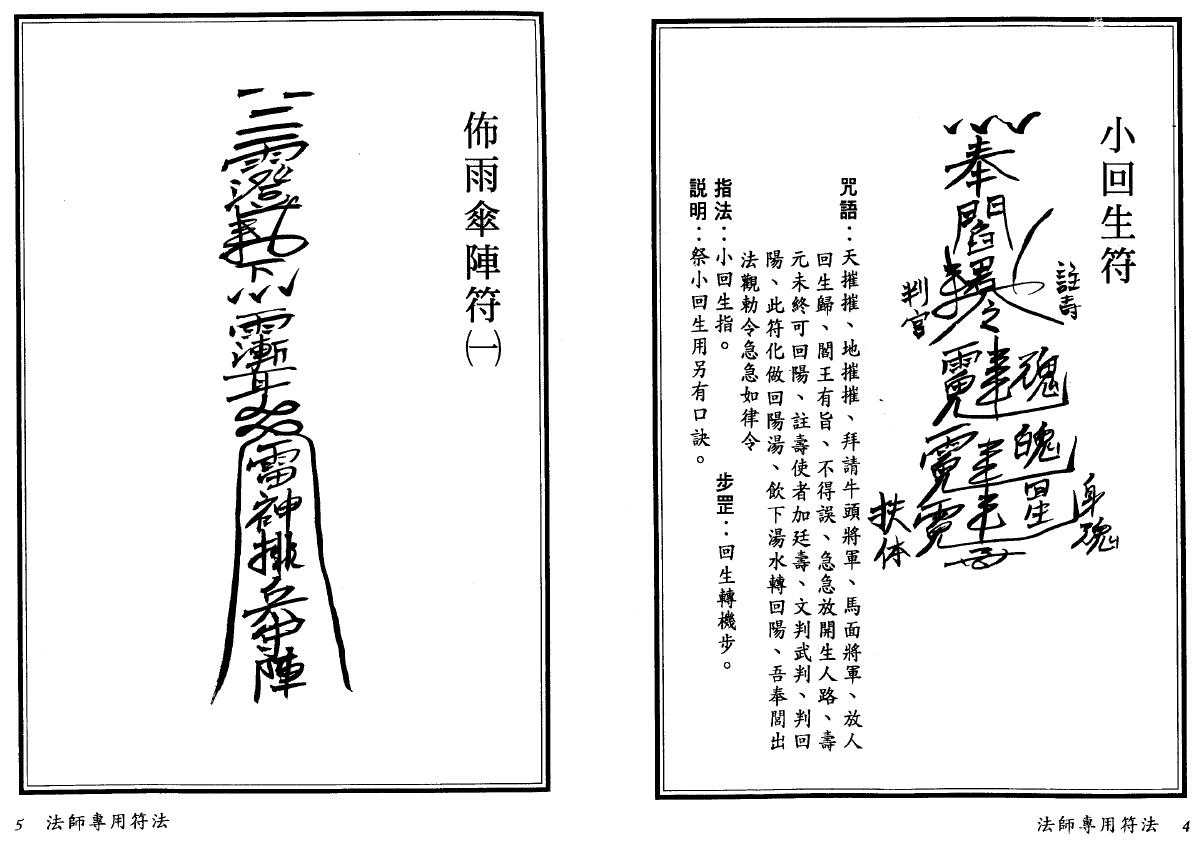 小回生符
奉
閻君
之
註壽
判官
魂
魄
身魂
扶体
咒語：天摧摧、地摧摧、拜請牛頭將軍、馬面將軍、放人
回生歸、閻王有旨、不得誤、急急放開生人路、壽
元未終可回陽、註壽使者加廷壽、文判武判、判回
陽、此符化做回陽湯、飲下湯水轉回陽、吾奉閭出
法觀勅令急急如律令
指法：小回生指。
步罡：回生轉機步。
説明：祭小回生用另有口訣。
法師專用符法 4
佈雨傘陣符㈠
雷神排兵守陣
5 法師專用符法